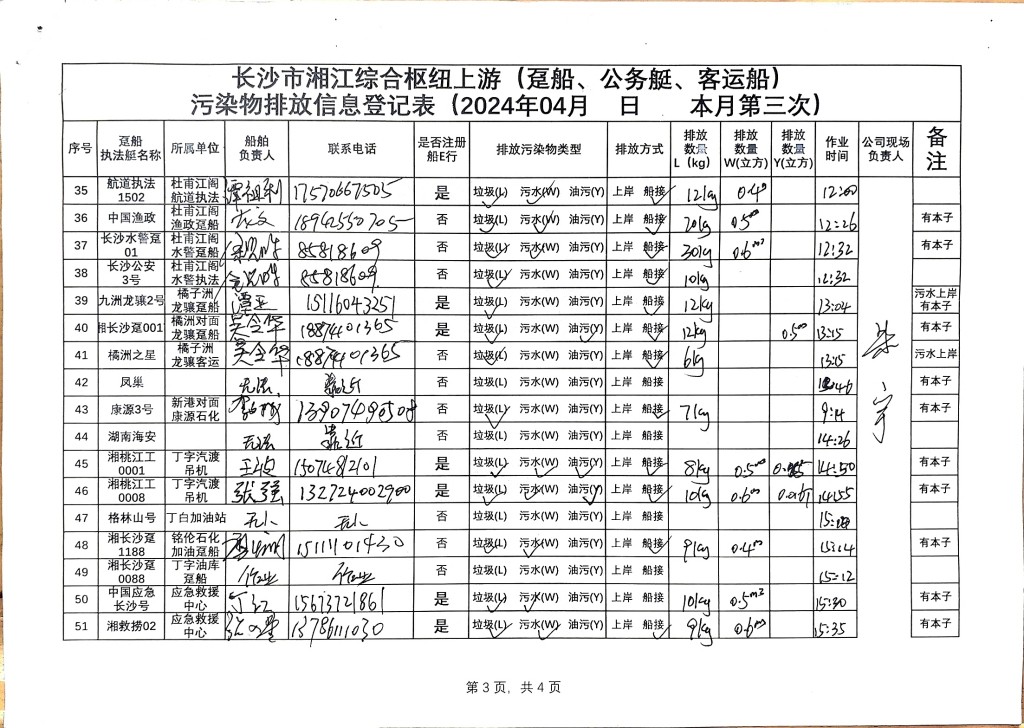 长沙市湘江综合枢纽上游（趸船、公务艇、客运船）
污染物排放信息登记表（2024年04月 日 本月第三次）
序号 趸船执法艇名称 所属单位 船舶负责人 联系电话 是否注册船E行 排放污染物类型 排放方式 排放数量L（kg） 排放数量W(立方) 排放数量Y(立方) 作业时间 公司现场负责人 备注
35 航道执法1502 杜甫江阁航道执法 谭祖利 17570667505 是 垃圾(L) 污水(W) 油污(Y) 上岸 船接 12kg 0.4 12:00
36 中国渔政 杜甫江阁渔政趸船 18942550705 否 垃圾(L) 污水(W) 油污(Y) 上岸 船接 20kg 0.5 12:26 有本子
37 长沙水警趸01 杜甫江阁水警趸船 85818609 否 垃圾(L) 污水(W) 油污(Y) 上岸 船接 30kg 0.6m³ 12:32 有本子
38 长沙公安3号 杜甫江阁水警执法 85818609 否 垃圾(L) 污水(W) 油污(Y) 上岸 船接 10kg 12:32
39 九洲龙骧2号 橘子洲龙骧趸船 谭亚 15116043251 是 垃圾(L) 污水(W) 油污(Y) 上岸 船接 12kg 13:04 污水上岸有本子
40 湘长沙趸001 橘洲对面龙骧趸船 吴全华 18874401365 是 垃圾(L) 污水(W) 油污(Y) 上岸 船接 12kg 0.5 13:15 有本子
41 橘洲之星 橘子洲龙骧客运 吴全华 18874401365 否 垃圾(L) 污水(W) 油污(Y) 上岸 船接 6kg 13:15 污水上岸
42 凤巢 无法 靠近 否 垃圾(L) 污水(W) 油污(Y) 上岸 船接 有本子
43 康源3号 新港对面康源石化 13907496508 否 垃圾(L) 污水(W) 油污(Y) 上岸 船接 7kg 9:14 有本子
44 湖南海安 无法 靠近 否 垃圾(L) 污水(W) 油污(Y) 上岸 船接 14:26
45 湘桃江工0001 丁字汽渡吊机 15074812101 是 垃圾(L) 污水(W) 油污(Y) 上岸 船接 8kg 0.5 14:50 有本子
46 湘桃江工0008 丁字汽渡吊机 张强 132724002900 是 垃圾(L) 污水(W) 油污(Y) 上岸 船接 10kg 0.6 14:55 有本子
47 格林山号 丁白加油站 无人 无人 否 垃圾(L) 污水(W) 油污(Y) 上岸 船接
48 湘长沙趸1188 铭伦石化加油趸船 15111101430 否 垃圾(L) 污水(W) 油污(Y) 上岸 船接 9kg 0.4 15:14 有本子
49 湘长沙趸0088 丁字油库趸船 作业 作业 否 垃圾(L) 污水(W) 油污(Y) 上岸 船接 15:12
50 中国应急长沙号 应急救援中心 丁红 15673721861 是 垃圾(L) 污水(W) 油污(Y) 上岸 船接 10kg 0.5m³ 15:30 有本子
51 湘救捞02 应急救援中心 13786111030 是 垃圾(L) 污水(W) 油污(Y) 上岸 船接 9kg 0.6 15:35 有本子
第 3 页，共 4 页